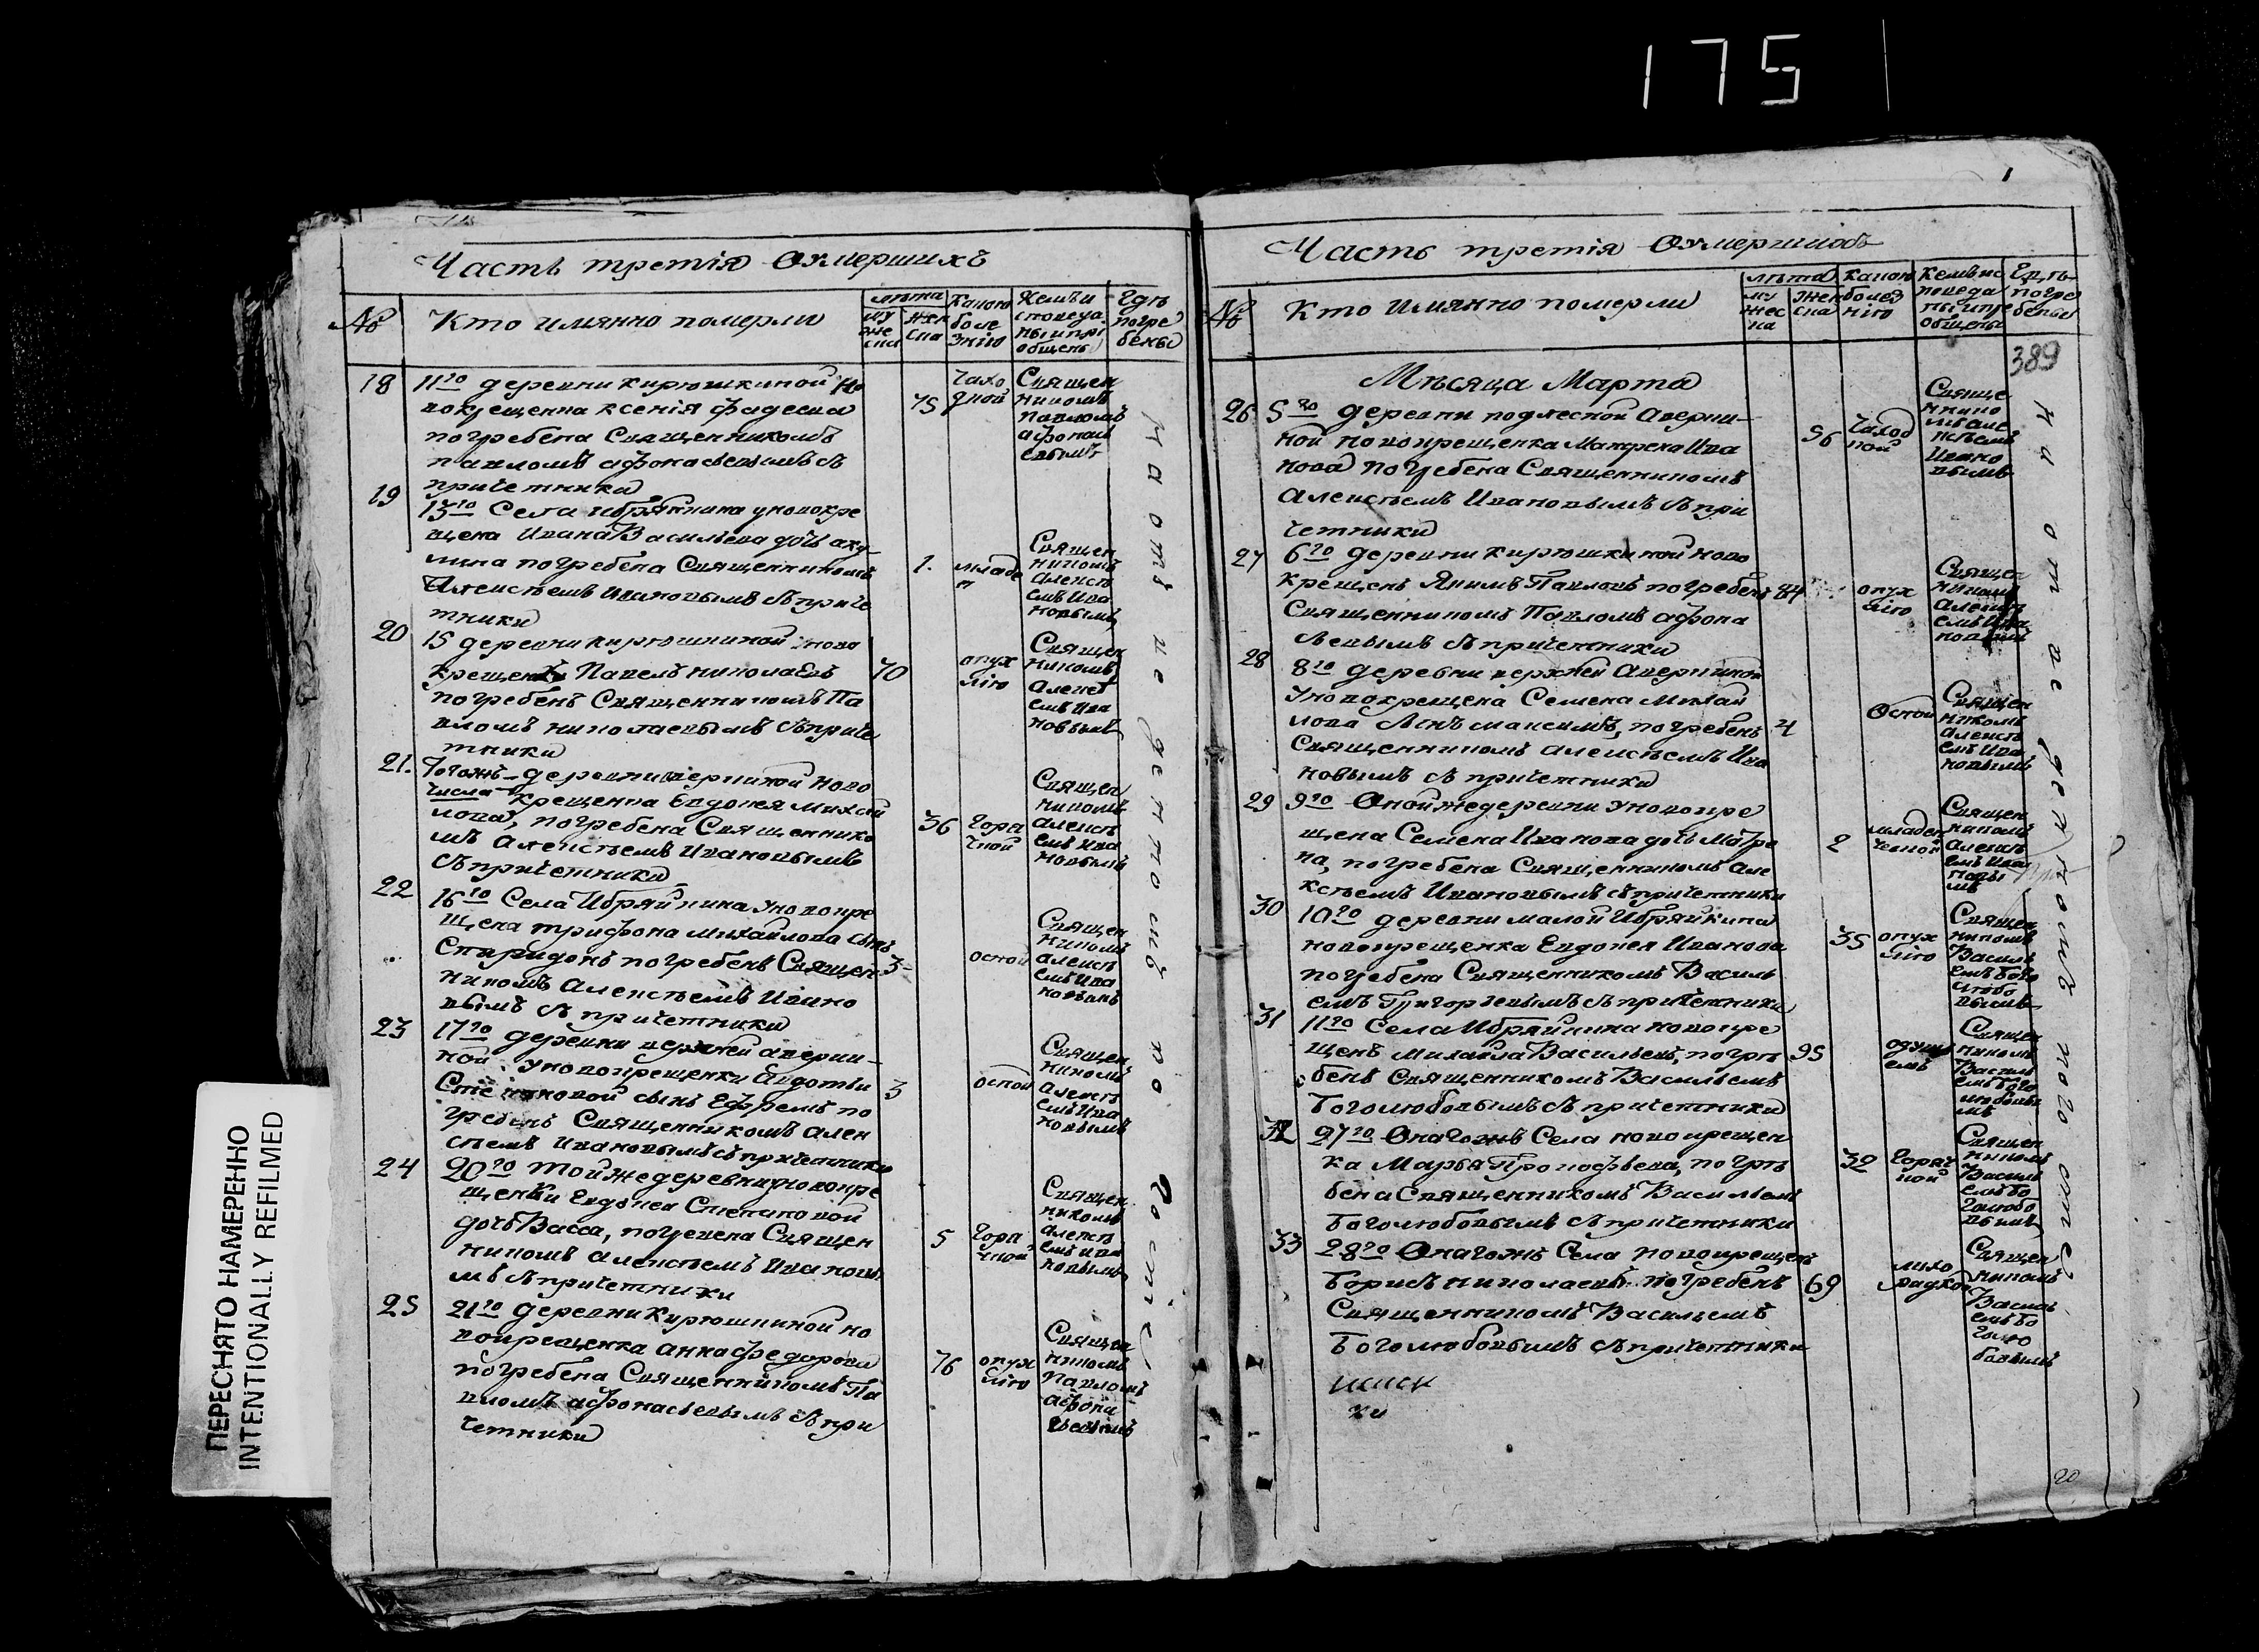 175
ПЕРЕСНЯТО НАМЕРЕННО
INTENTIONALLY REFILMED
Часть третія Оумершихъ
№
Кто имянно померли
лѣта
муже
ска
жен
ска
Какою
боле
знію
Кемъ и
споведа
ны и прі
общены
Гдѣ
погре
бены
18
11го деревни кирюшкиной но
вокрещенка ксенія фадеева
погребена Священникомъ
павломъ афонасьевымъ съ
причетники
75
Чахо
дной
Священ
никомъ
павломъ
афонась
евымъ
19
13го Села ибряйкина уновокре
щена Ивана Васильева дочь аку
лина погребена Священникомъ
Алексѣемъ Ивановымъ съ приче
тники
1.
младе
н
Священ
никомъ
Алексѣ
емъ Ива
новымъ
20
15 деревни кирюшкиной ново
крещенъ Павелъ николаевъ
погребенъ Священникомъ Па
вломъ николаевымъ съ приче
тники
70
опух
лію
Священ
никомъ
Алексѣ
емъ Ива
новымъ
21.
Тогожъ деревни аверкиной ново
числа крещенка Евдокея Михай
лова, погребена Священнико
мъ Алексѣемъ Ивановымъ
съ причетники
36
Горя
чкой
Священ
никомъ
Алексѣ
емъ Ива
новымъ
22
16го Села Ибряйкина уновокре
щена трифона михайлова сынъ
Спиридонъ погребенъ Священ
никомъ Алексѣемъ Ивано
вымъ съ причетники
3
оспой
Священ
никомъ
алексѣ
емъ Ива
новымъ
23
17го деревни верхней аверки
ной уновокрещенки Авдотьи
Степановой сынъ Ефремъ по
гребенъ Священникомъ Алек
сѣемъ Ивановымъ съ причетники
3
оспой
Священ
никомъ
Алексѣ
емъ Ива
новымъ
24
20го тойже деревни уновокре
щенки Евдокеи Степановой
дочь Васса, погребена Священ
никомъ Алексѣемъ Ивановы
мъ съ причетники
5
Горя
чкой
Священ
никомъ
алексѣ
емъ Ива
новымъ
25
21го деревни Кирюшкиной но
вокрещенка анна федорова
погребена Священникомъ Па
вломъ афонасьевымъ съ при
четники
76
опух
лію
Священ
никомъ
Павломъ
афона
сьевымъ
Часть третія Оумершихъ
№
Кто имянно померли
лѣта
му
жес
ка
жен
ска
какою
болез
нію
кемъ ис
поведа
ны и при
общены
Гдѣ
погре
бены
389
Мѣсяца Марта
26
5го деревни подлесной Аверки-
ной новокрещенка Матрена Ива
нова погребена Священникомъ
Алексѣемъ Ивановымъ съ при
четники
56
Чахот
кой
Свяще
ннико
мъ Але
ксѣемъ
Ивано
вымъ
27
6го деревни кирюшкиной ново
крещенъ Якимъ Павловъ погребенъ
Священникомъ Павломъ афона
сьевымъ съ причетники
84
опух
лію
Священ
никомъ
Алексѣ
емъ Ива
новымъ
28
8го деревни верхней Аверкиной
уновокрещена Семена Михай
лова сынъ максимъ, погребенъ
Священникомъ алексѣемъ Ива
новымъ съ причетники
4
Оспой
Священ
никомъ
Алексѣ
емъ Ива
новымъ
29
9го Онойже деревни уновокре
щена Семена Иванова дочь Матре
на, погребена Священникомъ Але
ксѣемъ Ивановымъ съ причетники
2
младен
ческой
Священ
никомъ
Алексѣ
емъ Ива
новы
мъ
30
10го деревни малой Ибряйкина
новокрещенка Евдокея Иванова
погребена Священникомъ Василь
емъ Григорьевымъ съ причетники
35
опух
лію
Священ
никомъ
Василь
емъ Бого
любо
вымъ
31
11го Села Ибряйкина новокре
щенъ Михайла Васильевъ, погре
бенъ Священникомъ Васильемъ
Боголюбовымъ съ причетники
95
одуш
емъ
Священ
никомъ
Василь
емъ Бого
любовы
мъ
32
27го Онагожъ Села новокрещен
ка Марья Прокофьева, погре
бена Священникомъ Васильемъ
Боголюбовымъ съ причетники
32
Горяч
кой
Священ
никомъ
Василь
емъ Бо
голюбо
вымъ
33
28го Онагожъ Села новокрещенъ
Борисъ николаевъ погребенъ
Священникомъ Васильемъ
Боголюбовымъ съ причетники
69
лихо
радкой
Священ
никомъ
Василь
емъ Бо
голю
бовымъ
20